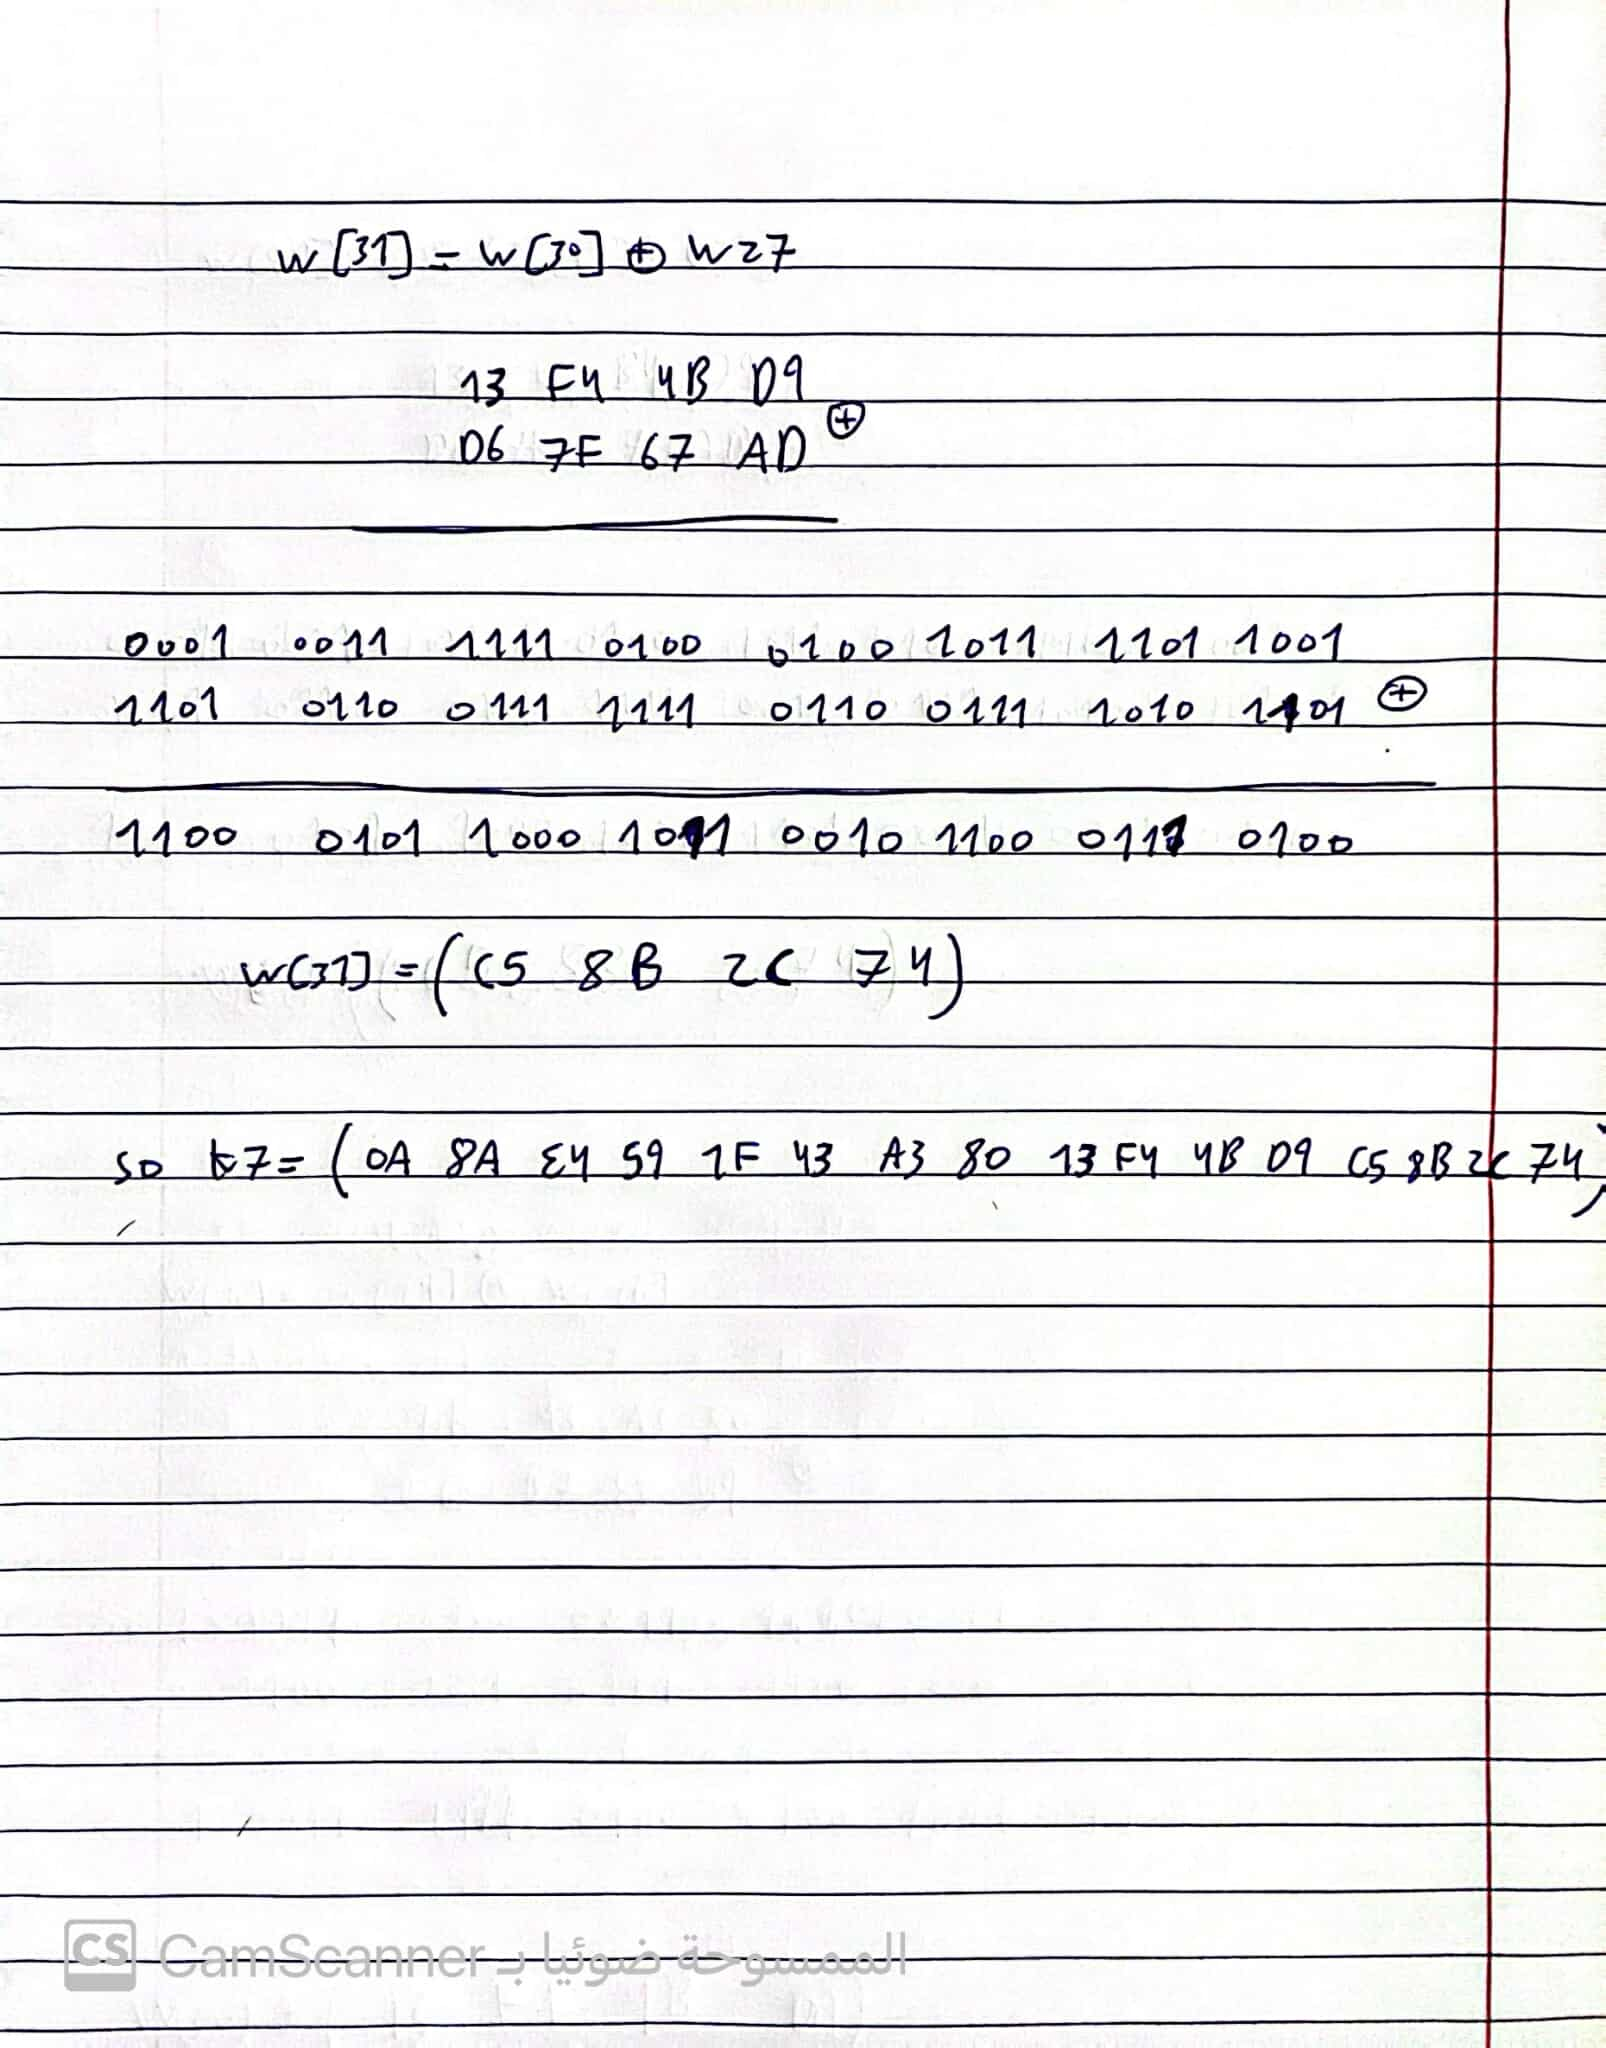 w[31] = w[30] ⊕ w27
13 F4 4B D9
⊕
D6 7F 67 AD
0001 0011 1111 0100 0100 1011 1101 1001
1101 0110 0111 1111 0110 0111 1010 1101 ⊕
1100 0101 1000 1011 0010 1100 0111 0100
w[31] = (C5 8B 2C 74)
so k7 = (0A 8A E4 59 1F 43 A3 80 13 F4 4B D9 C5 8B 2C 74)
CS الممسوحة ضوئيا بـ CamScanner